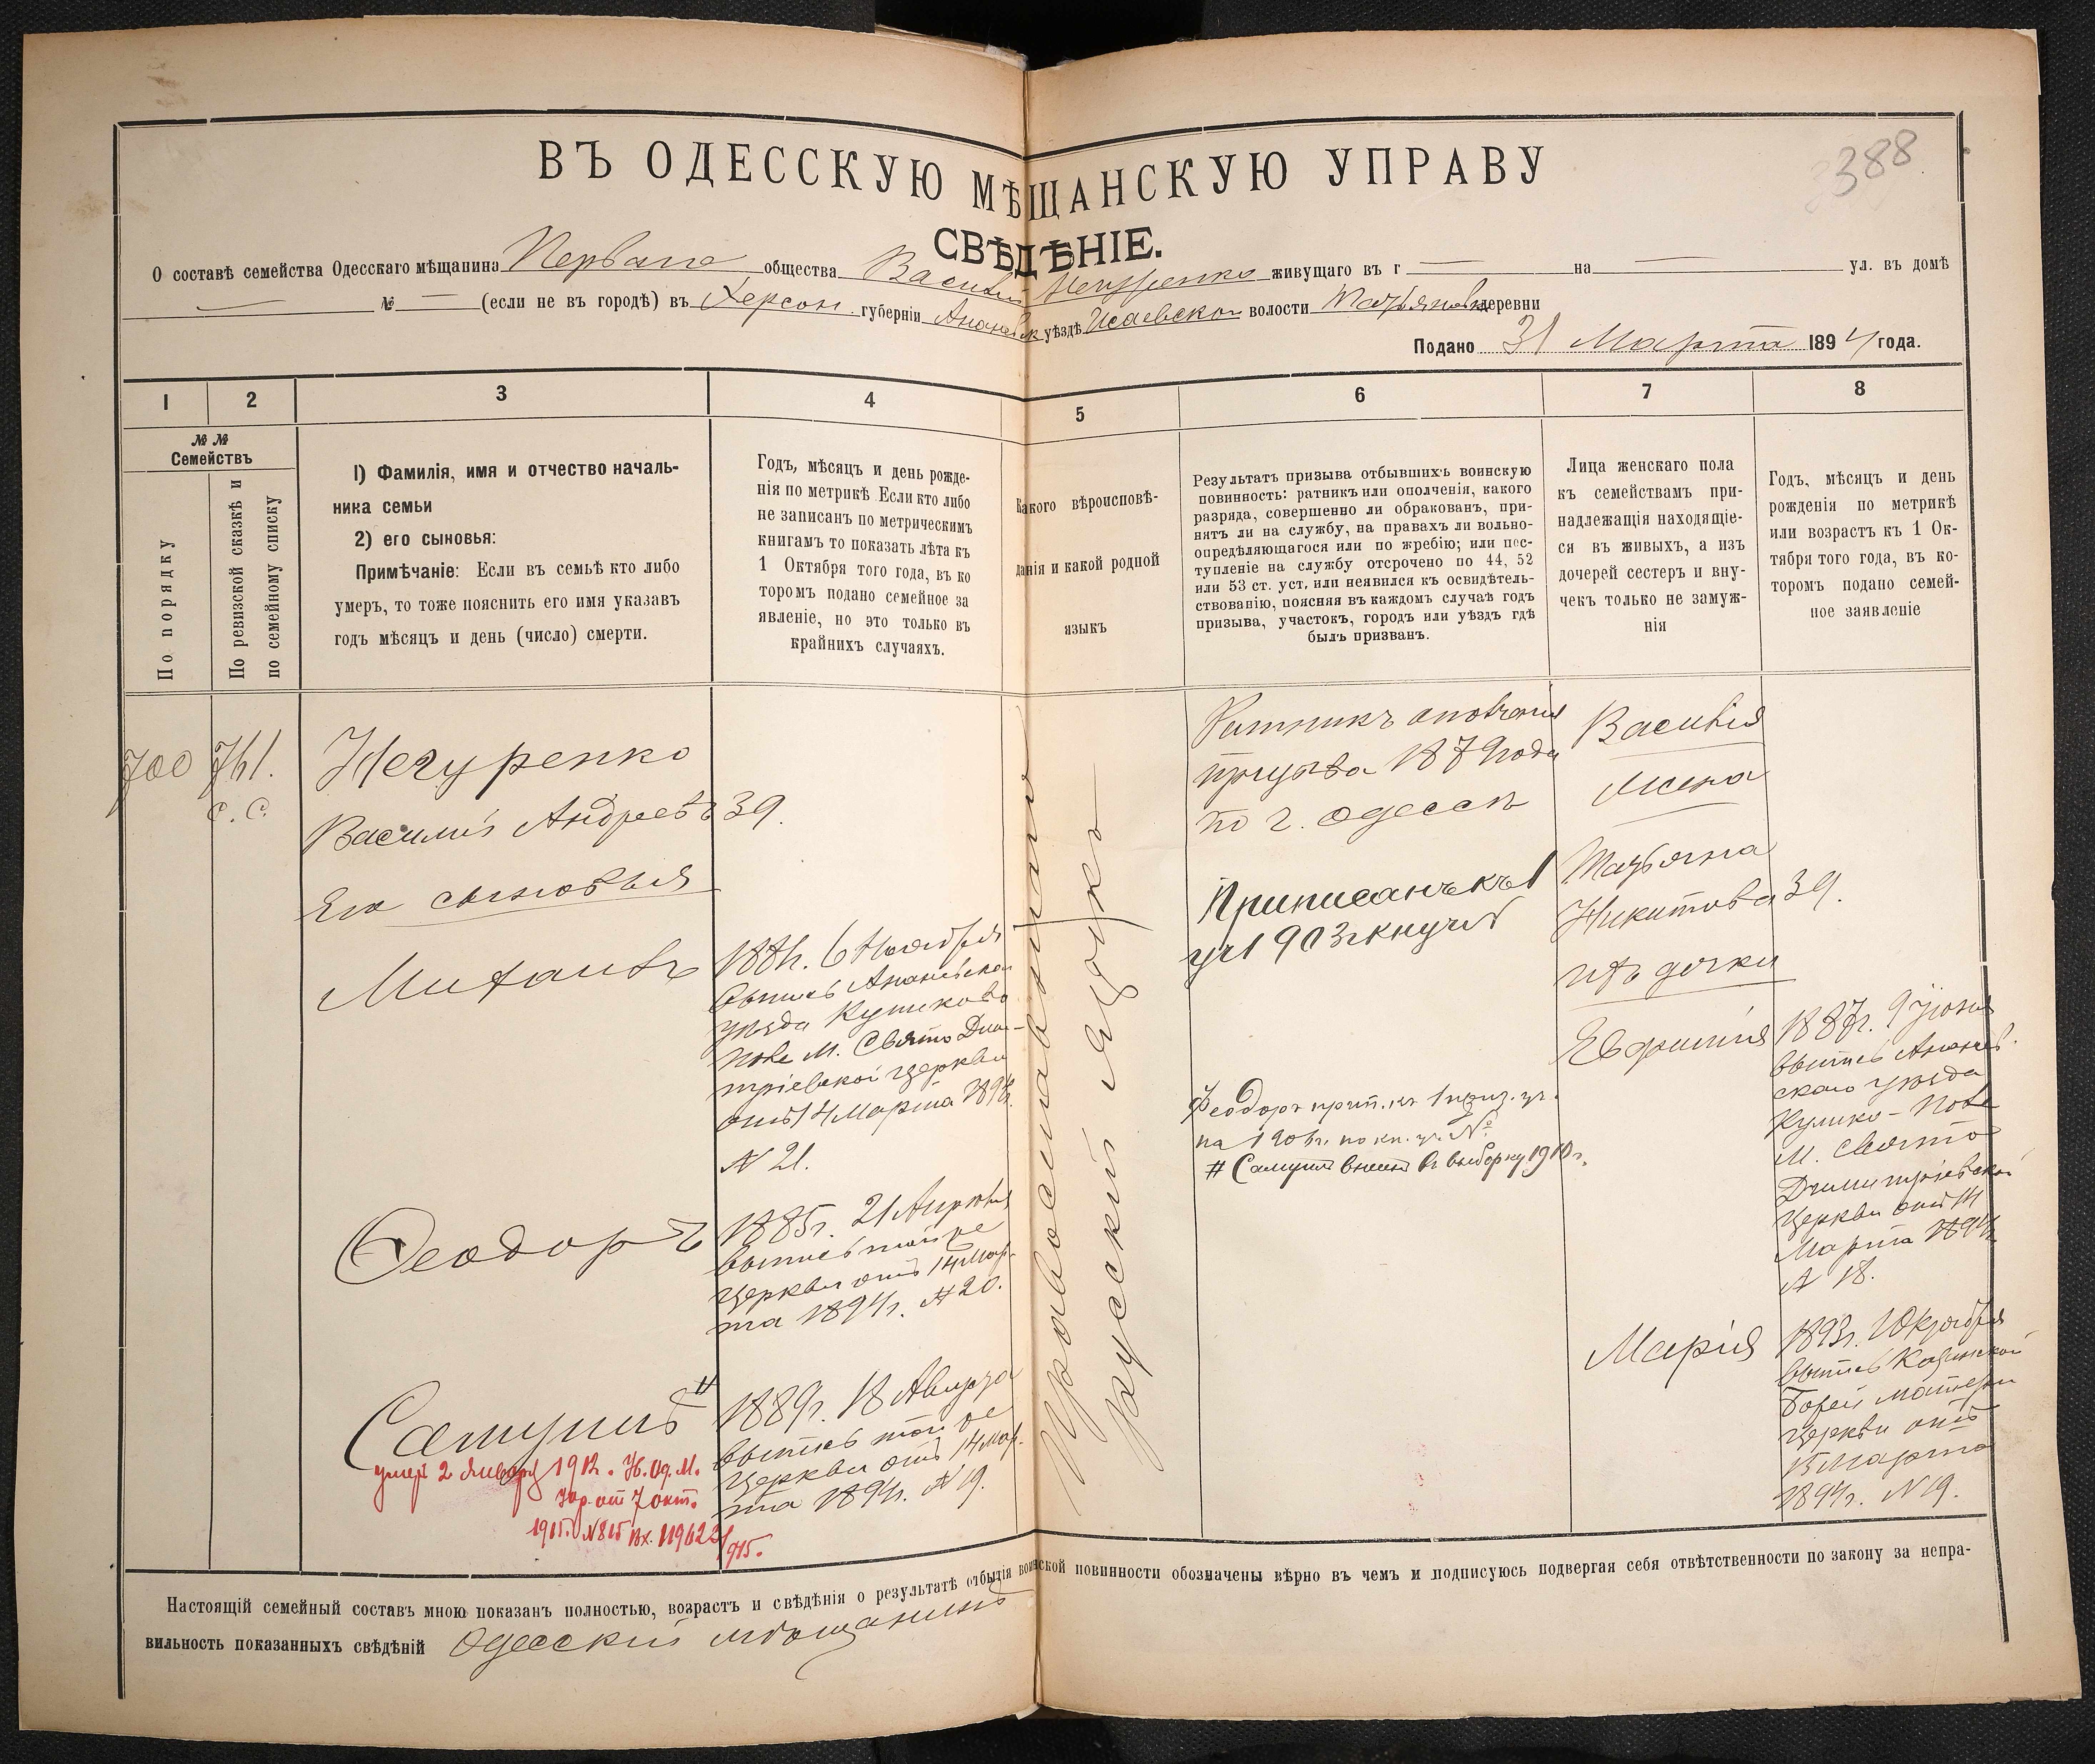 388
ВЪ ОДЕССКУЮ МѢЩАНСКУЮ УПРАВУ
СВѢДѢНІЕ.
О составѣ семейства Одесскаго мѣщанина Перваго общества Василій живущаго въ г — на — ул. въ домѣ
— № — (если не въ городѣ) въ Херсон. губерніи Ананьевск уѣздѣ Исаевской волости деревни
Подано 31 Марта 1894 года.
1 2 3 4 5 6 7 8
№ №
Семействъ
По порядку
По ревизской сказкѣ и
по семейному списку
1) Фамилія, имя и отчество началь-
ника семьи
2) его сыновья:
Примѣчаніе: Если въ семьѣ кто либо
умеръ, то тоже пояснить его имя указавъ
годъ мѣсяцъ и день (число) смерти.
Годъ, мѣсяцъ и день рожде-
нія по метрикѣ Если кто либо
не записанъ по метрическимъ
книгамъ то показать лѣта къ
1 Октября того года, въ ко
торомъ подано семейное за
явленіе, но это только въ
крайнихъ случаяхъ.
Какого вѣроисповѣ-
данія и какой родной
языкъ
Результатъ призыва отбывшихъ воинскую
повинность: ратникъ или ополченія, какого
разряда, совершенно ли обракованъ, при-
нятъ ли на службу, на правахъ ли вольно-
опредѣляющагося или по жребію; или пос-
тупленіе на службу отсрочено по 44, 52
или 53 ст. уст. или неявился къ освидѣтель-
ствованію, поясняя въ каждомъ случаѣ годъ
призыва, участокъ, городъ или уѣздъ гдѣ
былъ призванъ.
Лица женскаго пола
къ семействамъ при-
надлежащія находящіе-
ся въ живыхъ, а изъ
дочерей сестеръ и вну-
чекъ только не замуж-
нія
Годъ, мѣсяцъ и день
рожденія по метрикѣ
или возрастъ къ 1 Ок-
тября того года, въ ко-
торомъ подано семей-
ное заявленіе
700
761.
С. С.
Негуренко
Василій Андреевъ
Его сыновья
Михаилъ
Феодоръ
Самуилъ #
умеръ 2 Января 1912. Н. Од. М.
от 7 окт.
1915. №815 Вх. 119622/915.
39.
1881г. 6 Ноября
выпись Ананьевско
уѣзда Куликово
Поле М. Свято Дми-
тріевской церкви
отъ 14 Марта 1894г.
№ 21.
1885г. 21 Апрѣля
выпись той же
церкви отъ 14 Мар-
та 1894г. № 20.
1889г. 18 Августа
выпись той же
церкви отъ 14 Мар.
та 1894г. № 19.
Православнаго
русскій языкъ
Ратникъ ополченія
призыва 1879 года
по г. Одессѣ
Приписанъ къ 1
уч 1903г
Феодоръ прип. къ 1 приз. уч.
на 1906г. по кн. уч. №
# Самуилъ внесенъ въ выборку 1910г.
Василія
жена
Татьяна
Никитова
ихъ дочки
Евфимія
Марія
39.
1887г. 9 Іюня
выпись Ананьев-
скаго уѣзда
Кулико-Поле
М. Свято
Димитріевской
церкви отъ 14
Марта 1894г.
№ 18.
1893г. Октября
выпись Казанской
Божей Матери
церкви отъ
15 Марта
1894г. №19.
Настоящій семейный составъ мною показанъ полностью, возрастъ и свѣдѣнія о результатѣ отбытія воинской повинности обозначены вѣрно въ чемъ и подписуюсь подвергая себя отвѣтственности по закону за непра-
вильность показанныхъ свѣдѣній Одесскій мѣщанинъ